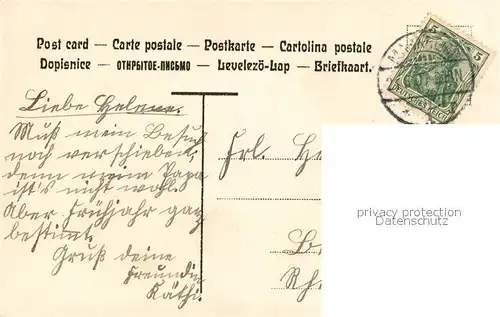 Post card — Carte postale — Postkarte — Cartolina postale
Dopisnice — ОТКРЫТОЕ-ПИСЬМО — Levelező-Lap — Briefkaart.
5 5
DEUTSCHES REICH
Liebe Helene.
Muß mein Besuch
noch verschieben,
denn meim Papa
ist's nicht wohl.
Aber Frühjahr ganz
bestimmt.
Gruß deine
Freundin
Käthi.
Frl. He
Rh
privacy protection
Datenschutz